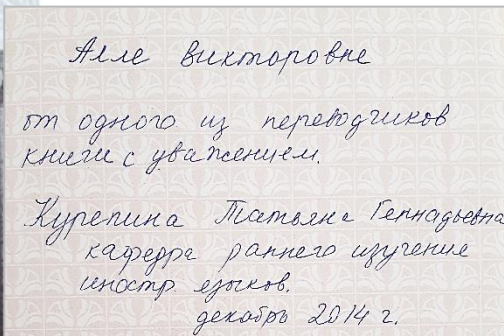 Алле Викторовне
от одного из переводчиков
книги с уважением.
Курепина Татьяна Геннадьевна
кафедра раннего изучение
иностр языков.
декабрь 2014 г.